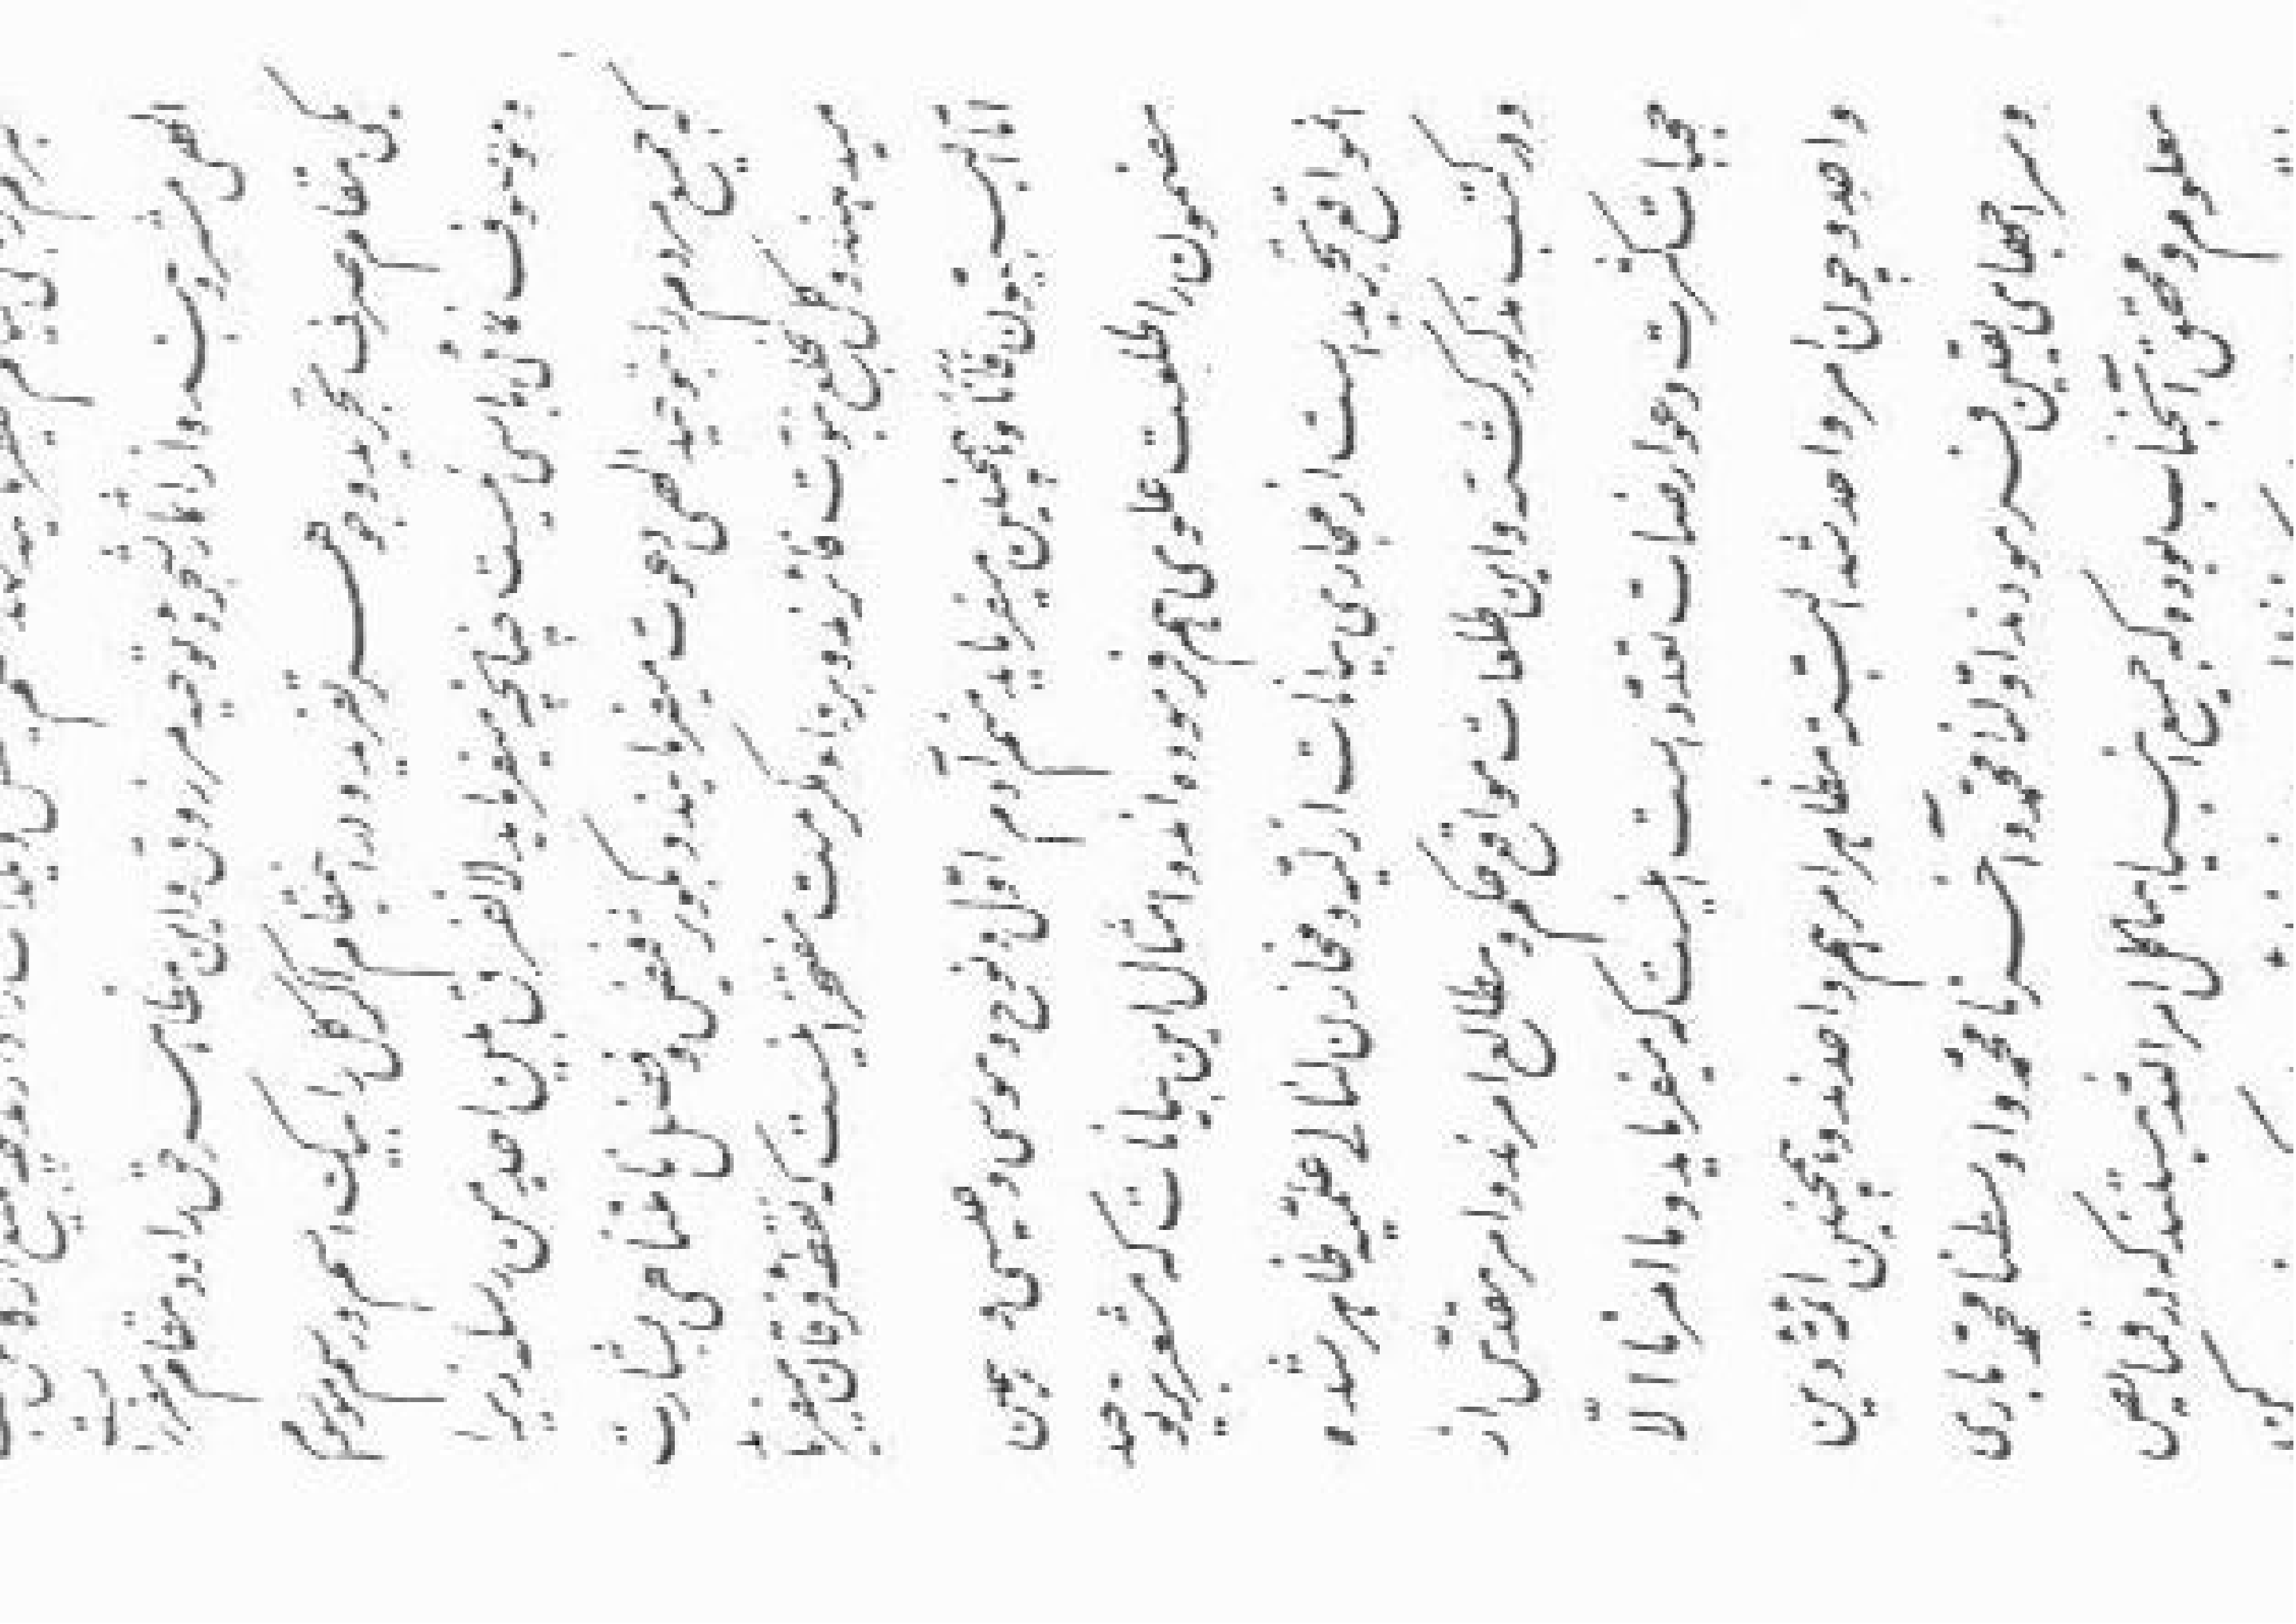 الهی شاربند و از اثمار شجره توحید مرزوق و این مظاهر حق را دو مقام مقرر است
یکی مقام صرف تجرید و جوهر تفرید و در این مقام اگر کل را بیک اسم و رسم موسوم
و موصوف نمائی بأسی نیست چنانچه میفرماید لا نفرق بین احد من رسله زیرا
که جمیع مردم را بتوحید الهی دعوت میفرمایند و بکوثر فیض و فضل نامتناهی بشارت
میدهند و کل بخلع نبوت فائزند و برداء مکرمت مفتخر اینست که نقطه فرقان میفرماید
اما النبیون فانا و همچنین میفرماید منم آدم اول و نوح و موسی و عیسی و همین
مضمون را طلعت علوی هم فرموده اند و امثال این بیانات که مشعر بر توحید
آن مواقع تجرید است از مجاری بیانات ازلیه و مخازن لئالی علمیه ظاهر شده
و در کتب مذکور گشته و این طلعات مواقع حکم و مطالع امرند و امر مقدس از
حجبات کثرت و عوارضات تعدد است اینست که میفرماید و ما امرنا الّا
واحده و چون امر واحد شد البته مظاهر امر هم واحدند و همچنین ائمه دین
و سراجهای یقین فرمودند اولنا محمّد و آخرنا محمّد و اوسطنا محمّد باری
معلوم و محقق آنجناب بوده که جمیع انبیا هیاکل امر الله هستند که در قمایص